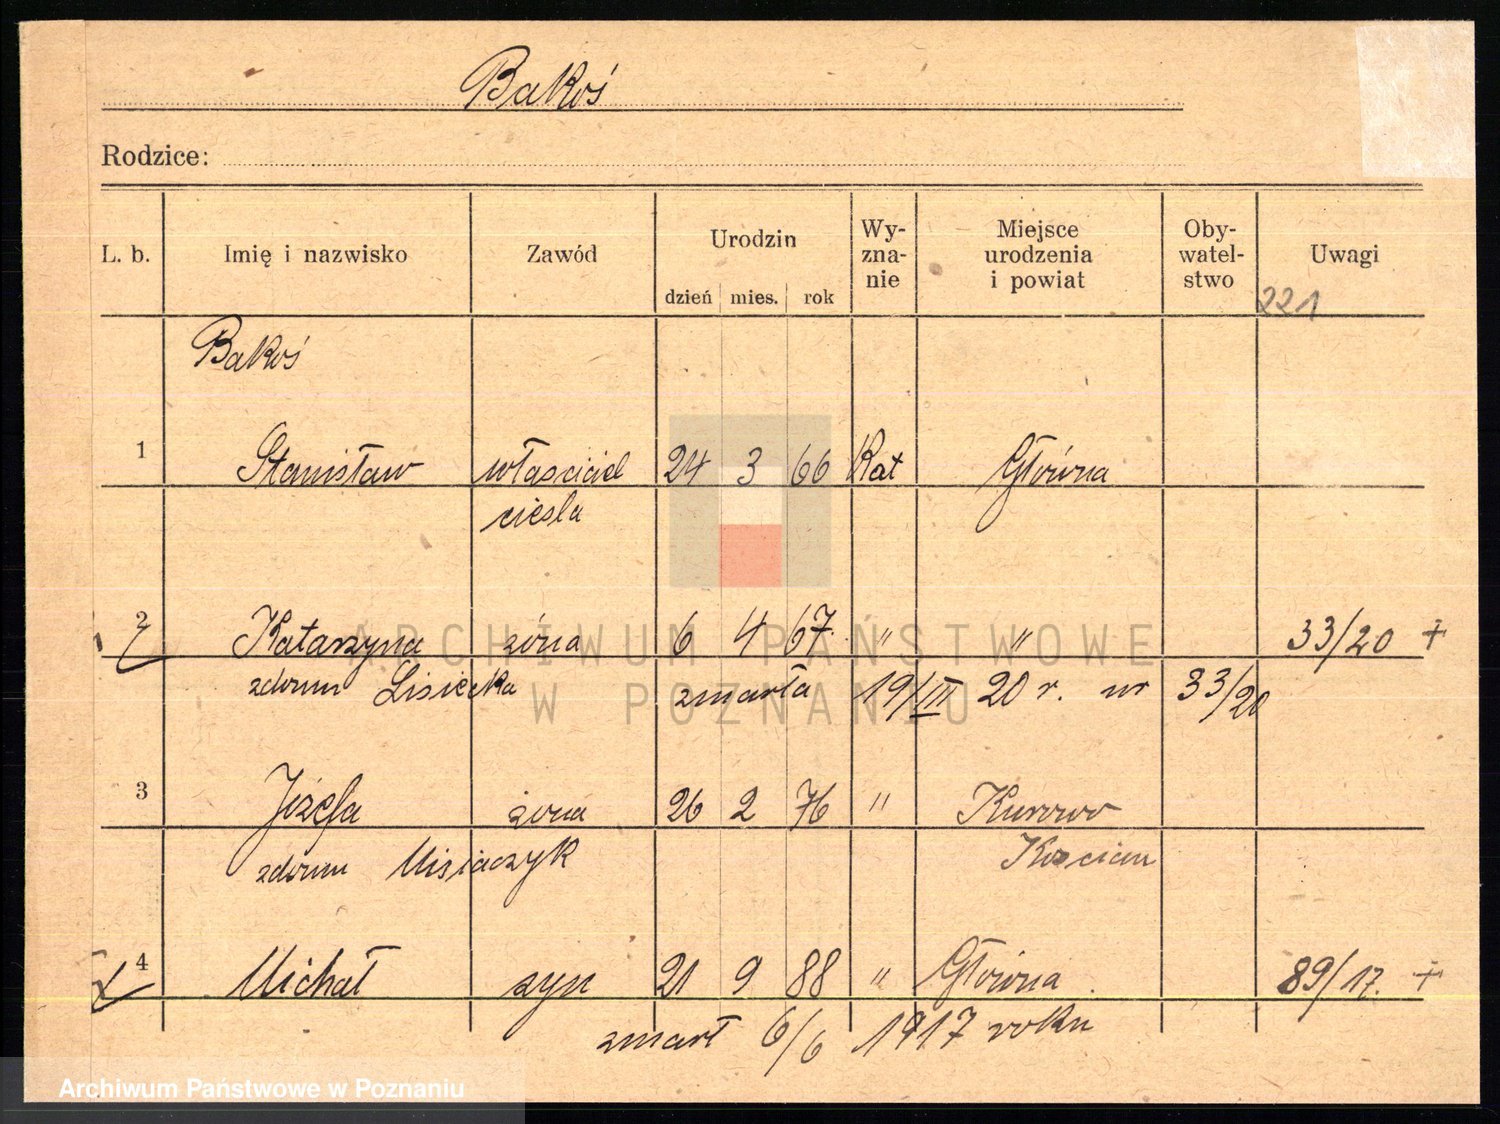 Bakoś
Rodzice:
L. b. Imię i nazwisko Zawód Urodzin dzień mies. rok Wy-zna-nie Miejsce urodzenia i powiat Oby-watel-stwo Uwagi
221
Bakoś
1 Stanisław właściciel 24 3 66 Kat Główna
ciesla
2 Katarzyna zóna 6 4 67. " " 33/20 +
zdomu Lisiecka zmarła 19/III 20 r. nr 33/20
3 Józefa żona 26 2 76 " Kurowo
zdomu Misiaczyk Kościan
4 Michał syn 21 9 88 " Główna 89/17. +
zmarł 6/6 1917 roku
ARCHIWUM PAŃSTWOWE
W POZNANIU
Archiwum Państwowe w Poznaniu